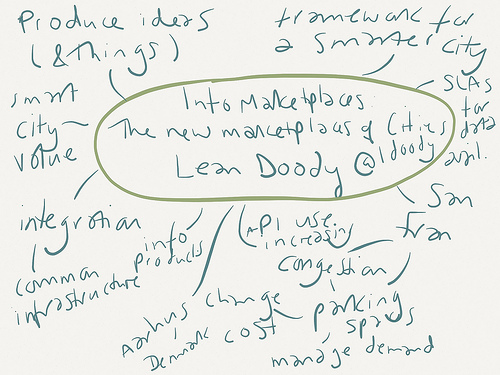 Produce ideas
(& things)
framework for
a smarter city
smart
city
value
Info Marketplaces:
The new marketplaces of Cities
Lean Doody @ldoody
SLAs
for
data
avail.
integration
common
infrastructure
info
products
API use
increasing
San
Fran
congestion
parking
spaces
manage demand
change
cost
Aarhus
Denmark